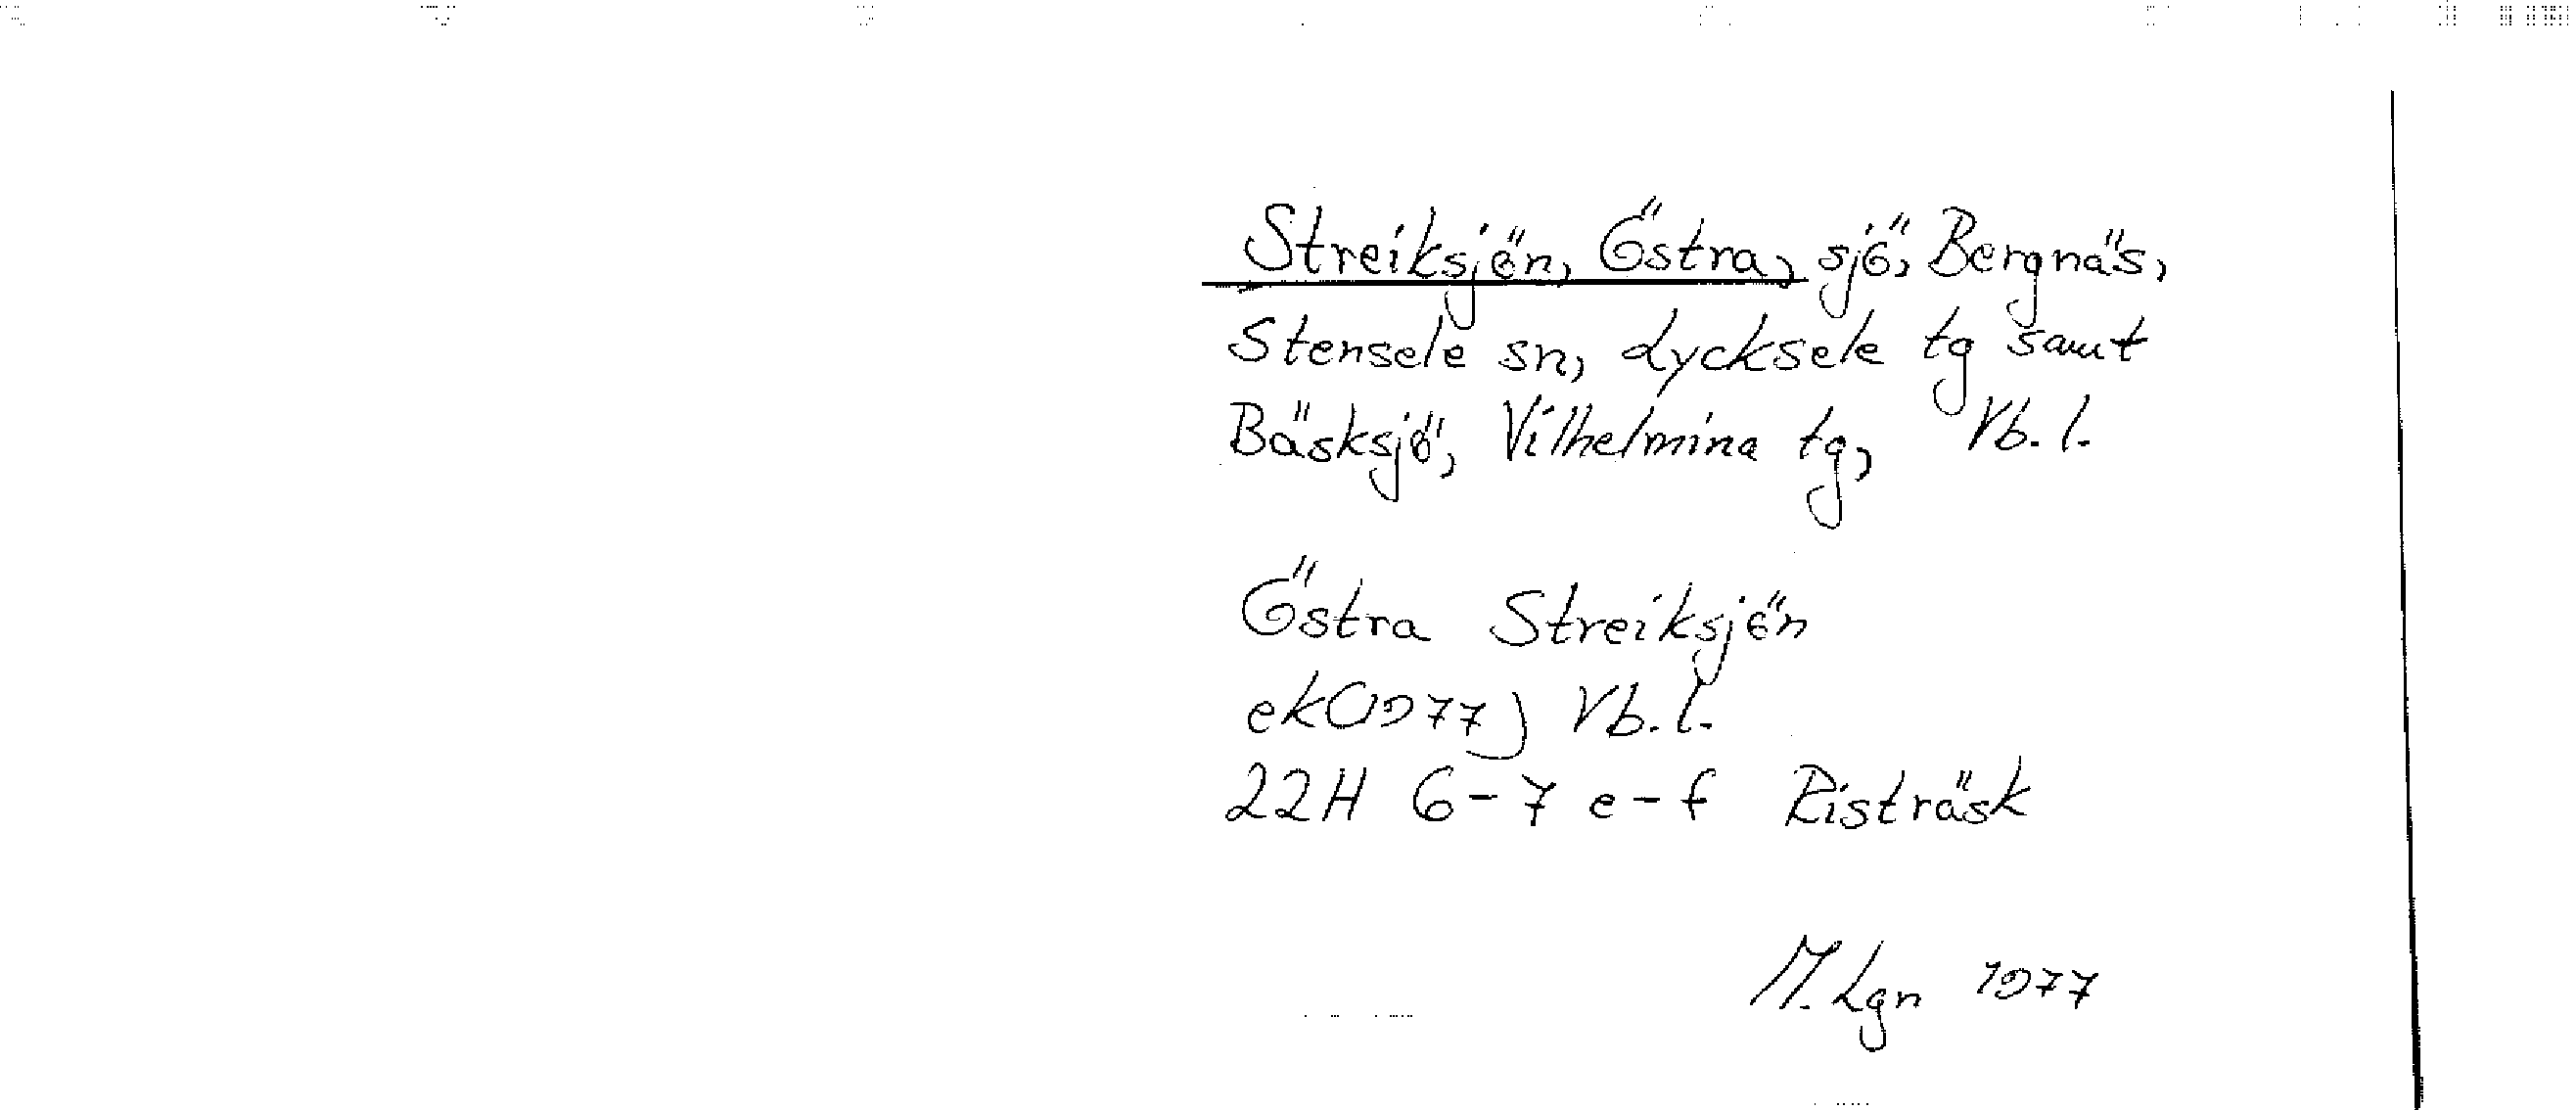 Streiksjön, Östra, sjö, Bergnäs,
Stensele sn, Lycksele tg samt
Bäsksjö, Vilhelmina tg, Vb. l.
Östra Streiksjön
ek(1977) Vb. l.
22H 6-7 e-f Risträsk
M. Lgn 1977